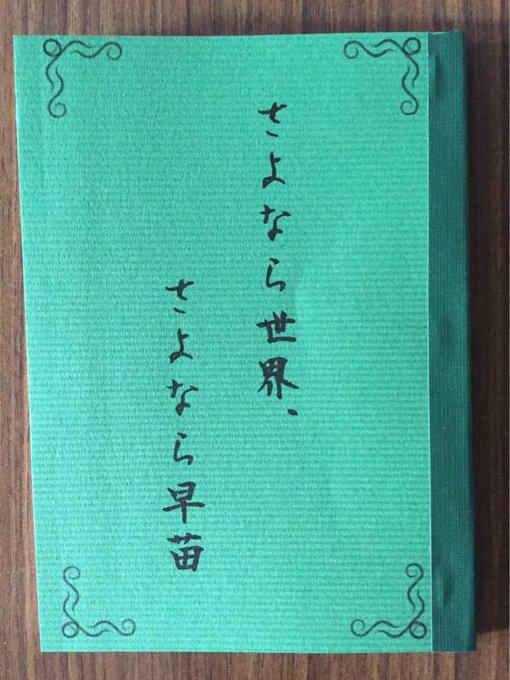 さよなら世界、
さよなら早苗